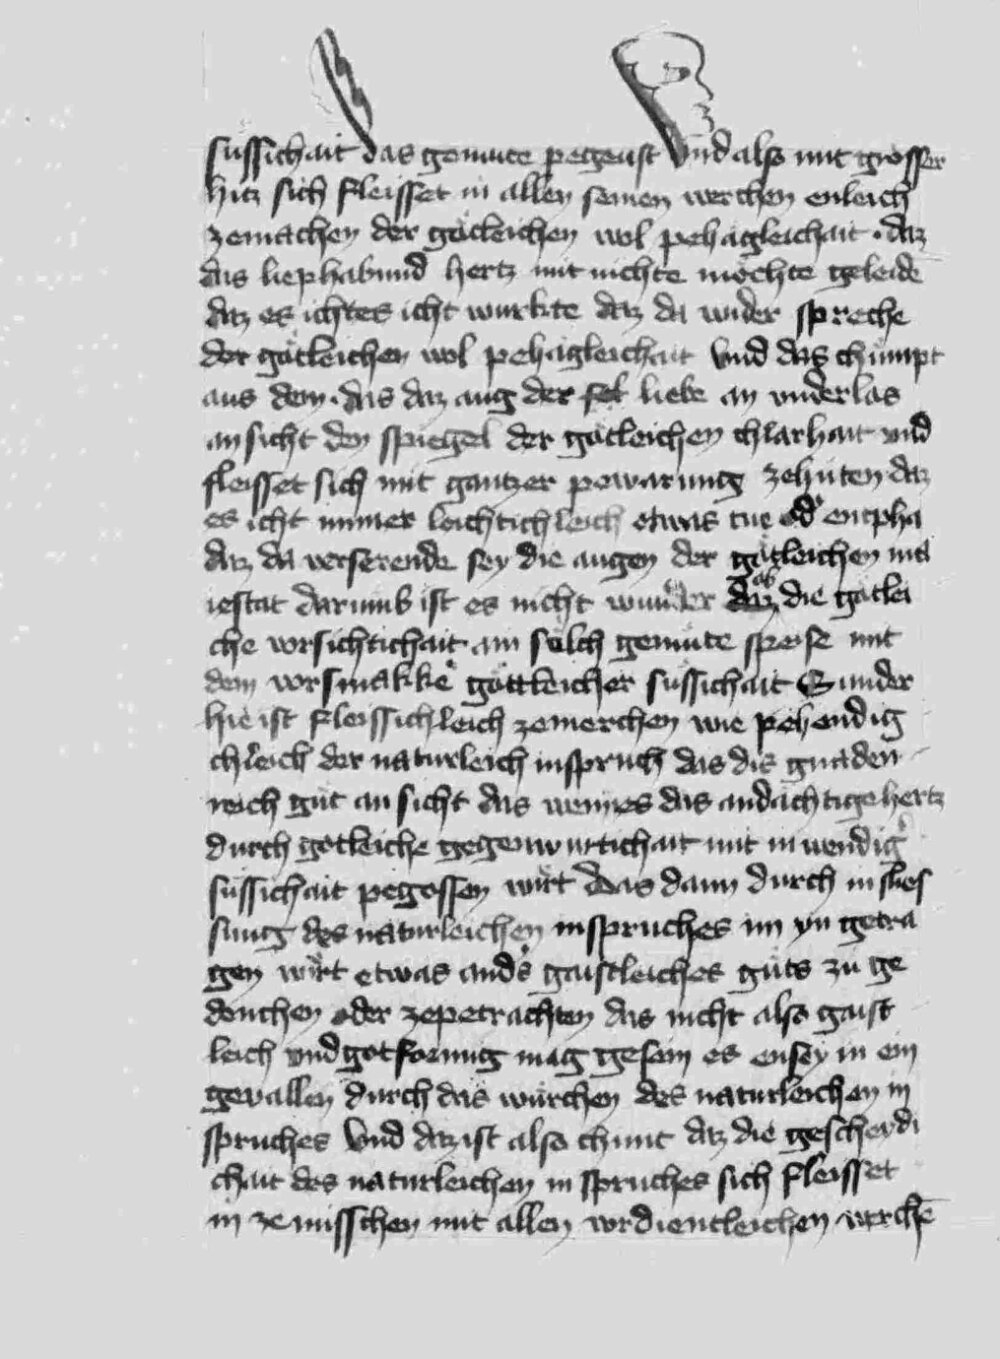 süssichait das gemüte pegeust Vnd also mit grosser
hitz sich fleisset in allen seinen werchen enleich
zemachen der götleichen wol pehagleichait · daz
das liephabund hertz mit nichte möchte geleide
daz es ichtes icht wurkte daz da wider spreche
der götleichen wol pehagleichait Vnd das chümpt
aus dem · das daz aug der sel liebe an vnderlas
an sicht den spiegel der götleichen chlarhait vnd
fleisset sich mit gantzer pewarung zehüten daz
es icht immer leichtichleich etwas tue od' enpha
daz da verserende sey die augen der götleichen ma
iestat darumb ist es nicht wunder ob die götlei
che vorsichtichait ain sölch gemüte speise mit
dem vorsmakke götleicher süssichait Sunder
hie ist fleissichleich zemerchen wie pehendig
chleich der naturleich inspruch das dis gnaden
reich gut an sicht das wenn es das andächtige hertz
durch götleiche gegenwurtichait mit inwendig'
süssichait pegossen wirt Das dann durch in slies
sung des naturleichen inspruches im yn getra
gen wirt etwas and's gaistleiches güts zü ge
denchen oder zepetrachten das nicht also gaist
leich vnd gotformig mag gesein es ensey in ein
geuallen durch das würchen des naturleichen in
spruches Vnd daz ist also chunt daz die gescheydi
chait des naturleichen in spruches sich fleisset
in ze misschen mit allen vordientleichen werchē